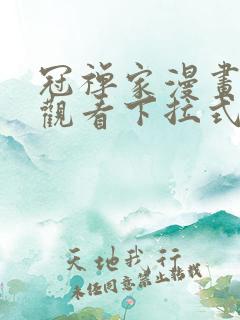 冠禪家漫畫
觀看下拉式
天地我行
未經同意禁止轉載